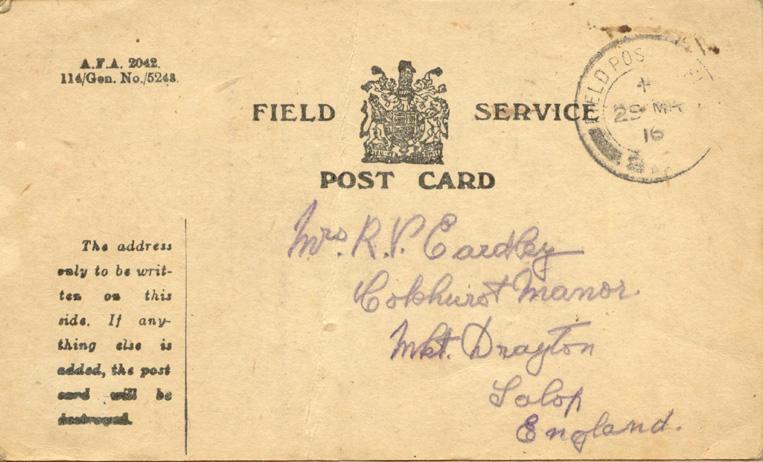 A.F.A. 2042.
114/Gen. No./5248.
FIELD SERVICE
POST CARD
FIELD POS
29 MR
16
The address
only to be writ-
ten on this
side. If any-
thing else is
added, the post
card will be
destroyed.
Mrs. R. V. Eardley
Mkt. Drayton
Salop
England.
Manor.